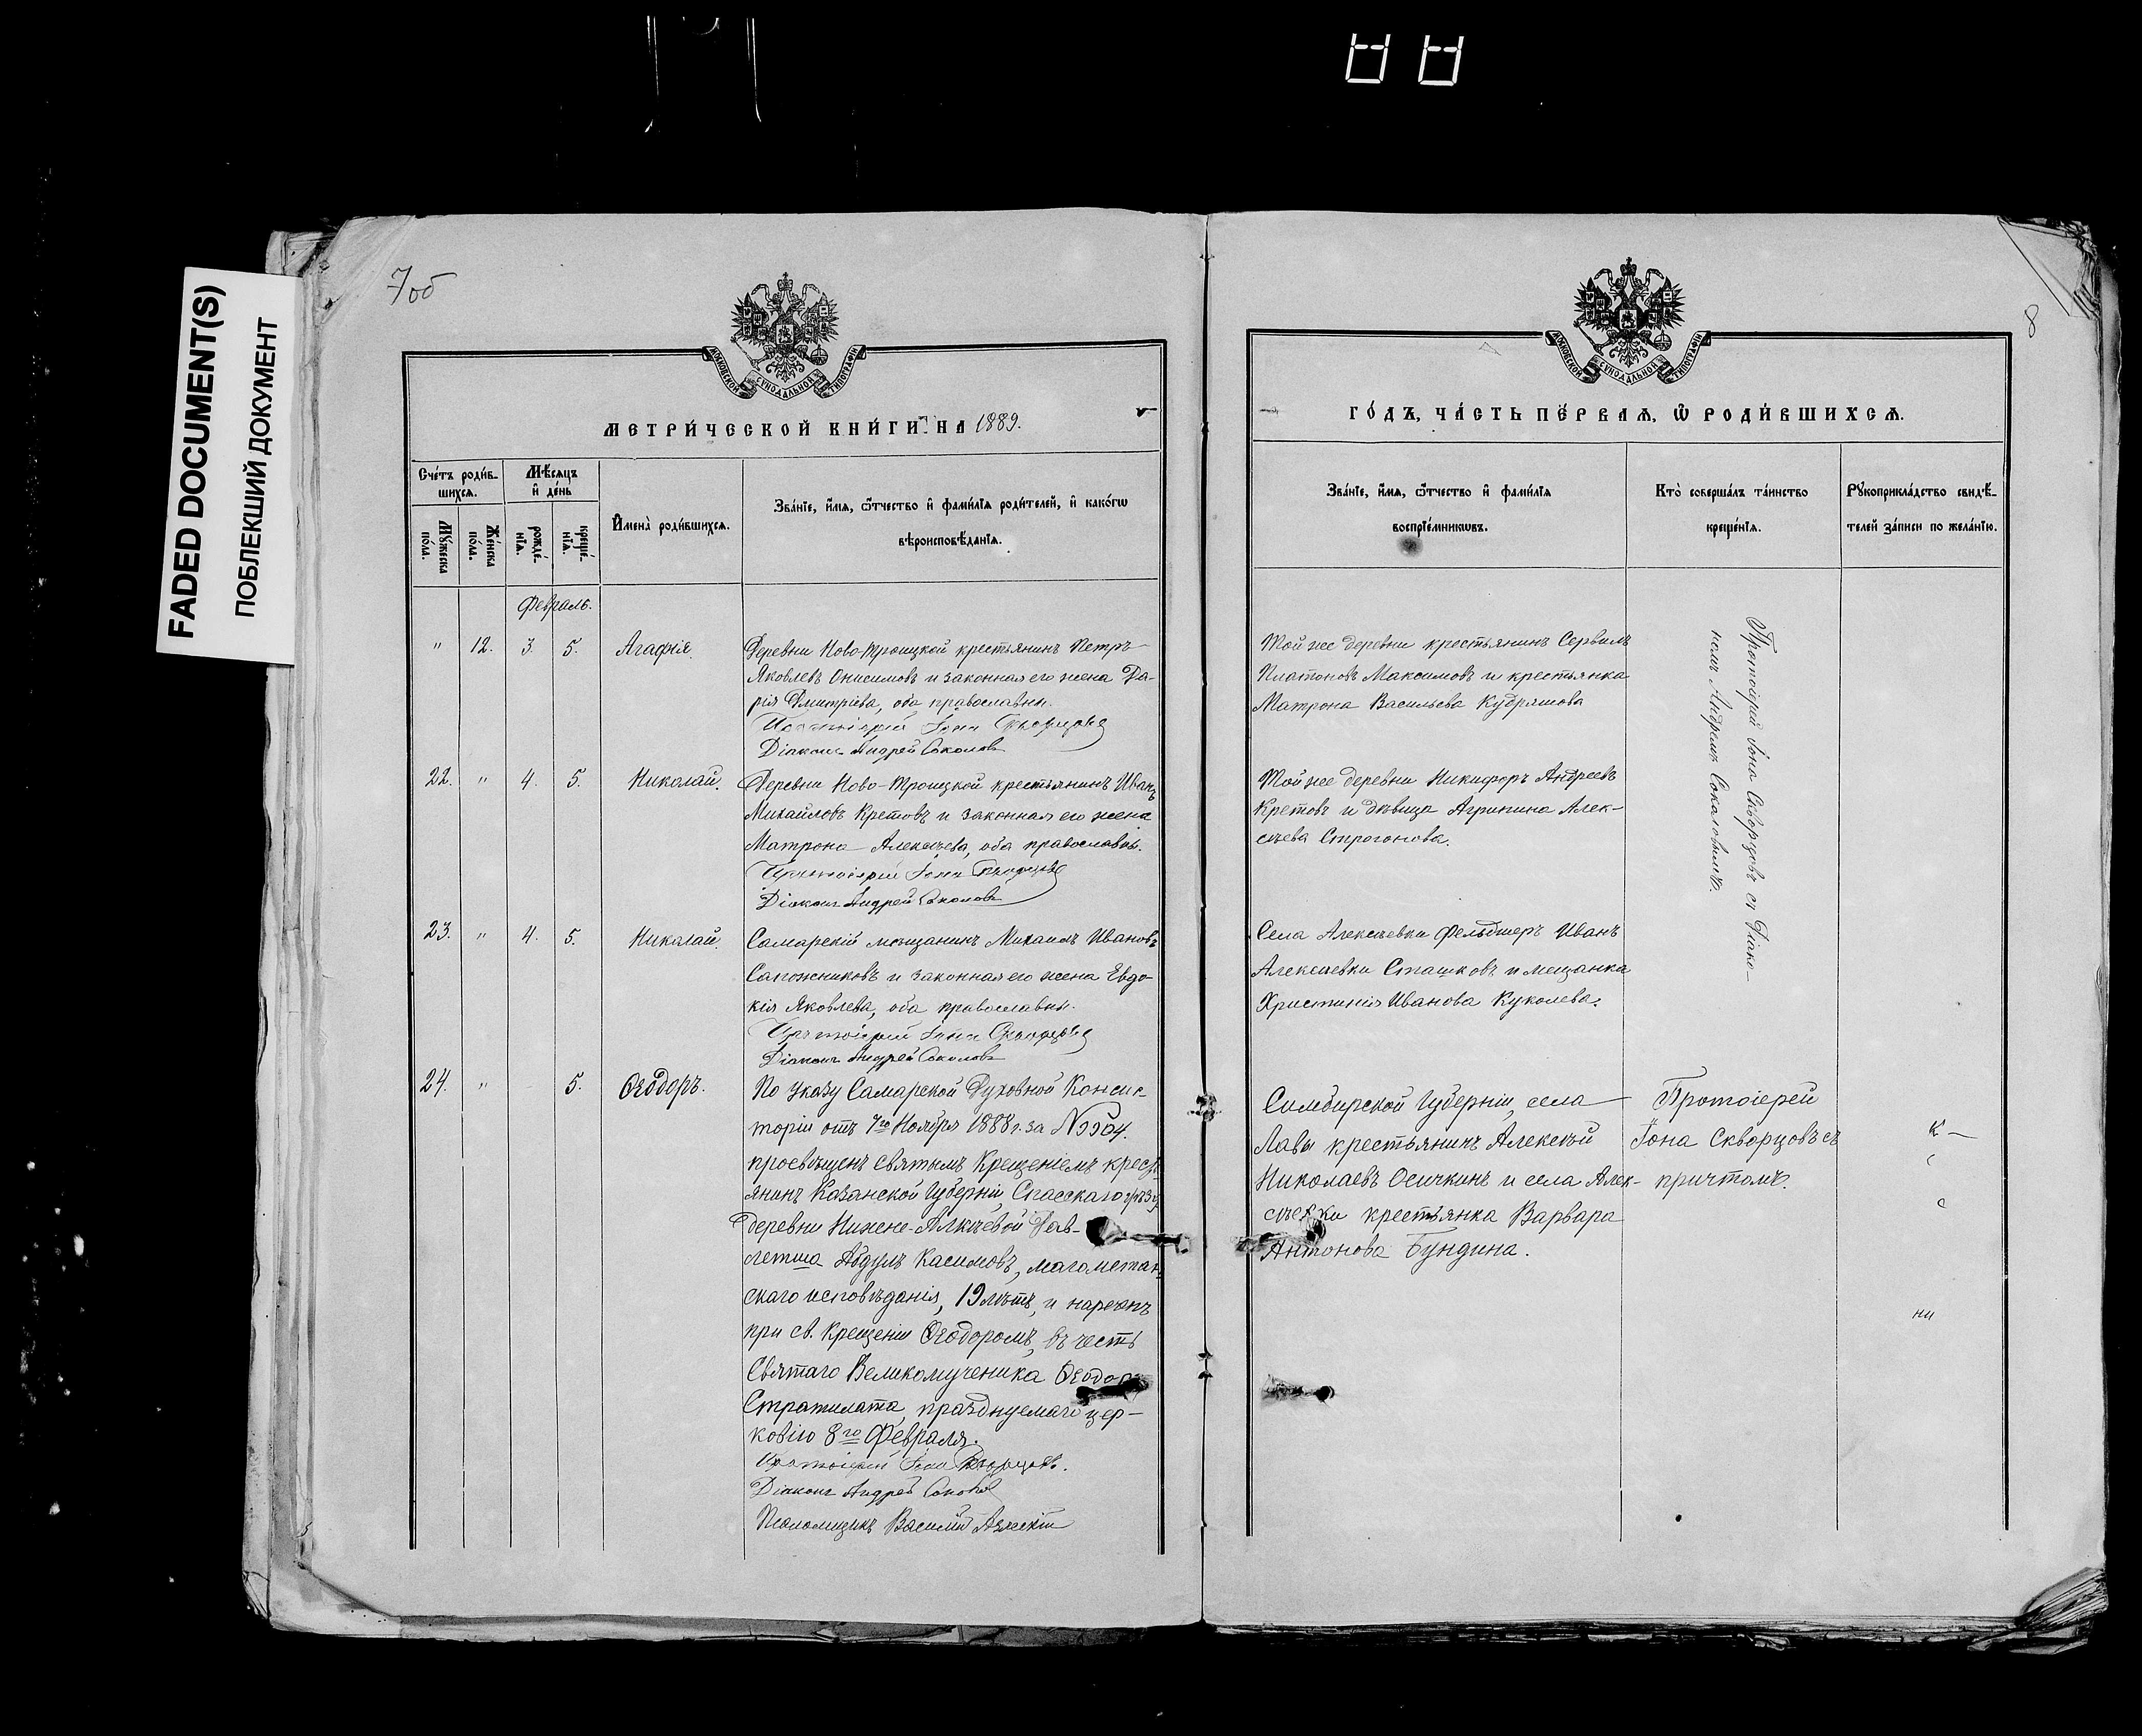 FADED DOCUMENT(S)
ПОБЛЕКШИЙ ДОКУМЕНТ
7об
МОСКОВСКОЙ СѴНОДАЛЬНОЙ ТИПОГРАФІИ
МЕТРИ́ЧЕСКОЙ КНИ́ГИ НА 1889.
Сче́тъ роди́в-
шихсѧ.
Мѣ́сѧцъ
и҆ де́нь
Мꙋ́жеска
по́ла.
Же́нска
по́ла.
рожде́-
нїѧ.
креще́-
нїѧ.
И҆мена̀ роди́вшихсѧ.
Зва́нїе, и҆́мѧ, ѻ҆́тчество и҆ фами́лїѧ роди́телей, и҆ како́гѡ
вѣроисповѣ́данїѧ.
Февраль.
" 12. 3. 5. Агафія.
Деревни Ново-Троицкой крестьянинъ Петръ
Яковлевъ Онисимовъ и законная его жена Да-
рія Дмитріева, оба православны.
Протоіерей Іона Скворцовъ
Діаконъ Андрей Соколовъ
22. " 4. 5. Николай.
Деревни Ново-Троицкой крестьянинъ Иванъ
Михайловъ Кретовъ и законная его жена
Матрона Алексѣева, оба православны.
Протоіерей Іона Скворцовъ
Діаконъ Андрей Соколовъ
23. " 4. 5. Николай.
Самарскій мѣщанинъ Михаилъ Ивановъ
Сапожниковъ и законная его жена Евдо-
кія Яковлева, оба православны.
Протоіерей Іона Скворцовъ
Діаконъ Андрей Соколовъ
24. " 5. Ѳеодоръ.
По Указу Самарской Духовной Консис-
торіи отъ 7го Ноября 1888 г. за №
просвѣщенъ святымъ Крещеніемъ кресть-
янинъ Казанской Губерніи, Спасскаго уѣзда,
деревни Нижне-Алкѣевой Дав-
летша Абдулъ Касимовъ, магометан-
скаго исповѣданія, 19 лѣтъ, и нареченъ
при св. Крещеніи Ѳеодоромъ, въ честь
Святаго Великомученика Ѳеодора
Стратилата, празднуемаго цер-
ковію 8го Февраля.
Протоіерей Іона Скворцовъ.
Діаконъ Андрей Соколовъ
Псаломщикъ Василій
8
МОСКОВСКОЙ СѴНОДАЛЬНОЙ ТИПОГРАФІИ
ГО́ДЪ, ЧА́СТЬ ПЕ́РВАѦ, Ѽ РОДИ́ВШИХСѦ.
Зва́нїе, и҆́мѧ, ѻ҆́тчество и҆ фами́лїѧ
воспрїе́мникѡвъ.
Кто̀ соверша́лъ та́инство
креще́нїѧ.
Рꙋкоприкла́дство свидѣ́-
телей за́писи по жела́нїю.
Той же деревни крестьянинъ Сервилъ
Платоновъ Максимовъ и крестьянка
Матрона Васильева Кудряшова
Протоіерей Іона Скворцовъ съ Діако-
номъ Андреемъ Соколовымъ.
Той же деревни Никифоръ Андреевъ
Кретовъ и дѣвица Агрипина Алек-
сѣева Строгонова.
Села Алексѣевки фельдшеръ Иванъ
Алексѣевъ Сташковъ и мѣщанка
Христинія Иванова Куколева.
Симбирской Губерніи, села
Лавы крестьянинъ Алексѣй
Николаевъ Осичкинъ и села Алек-
сѣевки крестьянка Варвара
Антонова Бундина.
Протоіерей
Іона Скворцовъ съ
причтомъ.